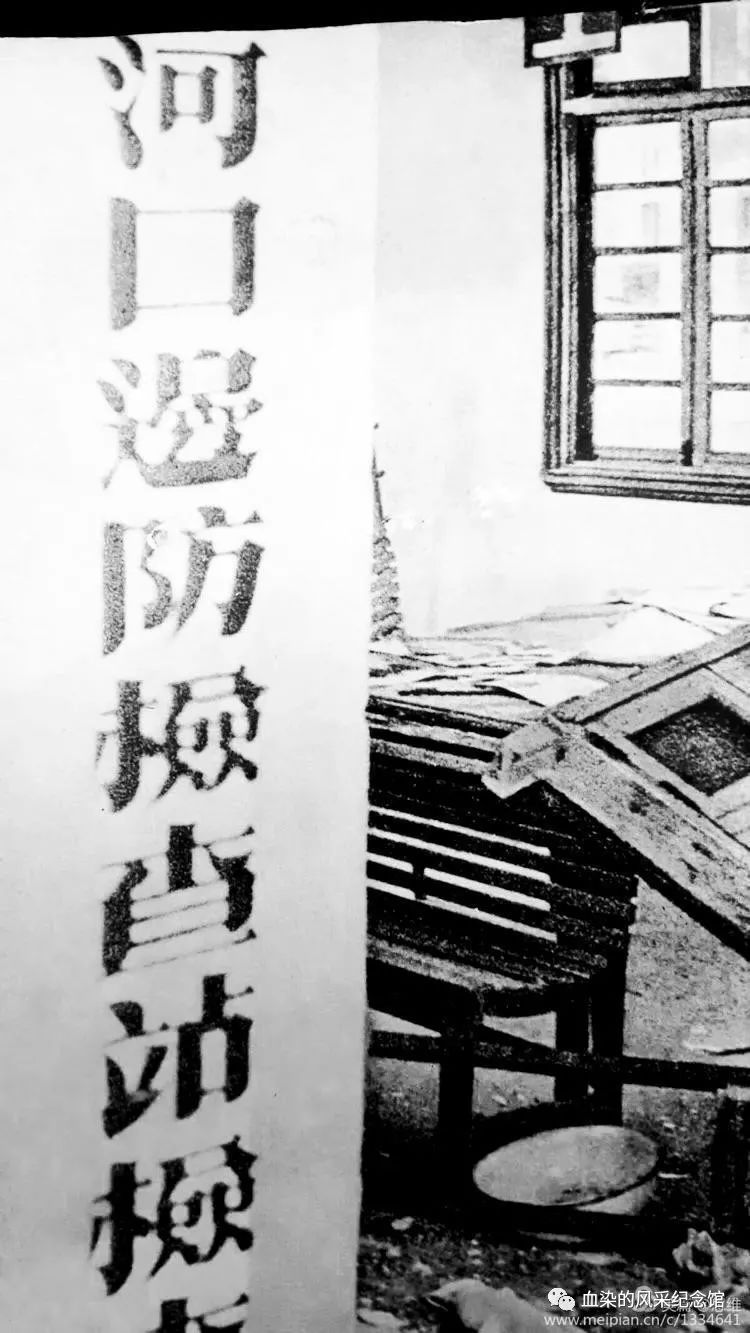 河口邊防檢查站檢查
血染的风采纪念馆
www.meipian.cn/c/1334641